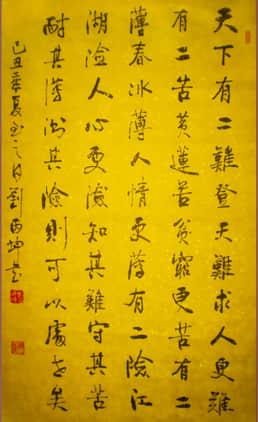 天下有二難登天難求人更難
有二苦黃連苦貧窮更苦有二
薄春冰薄人情更薄有二險江
湖險人心更險知其難守其苦
耐其薄測其險則可以處世矣
己丑季夏之月劉坤書